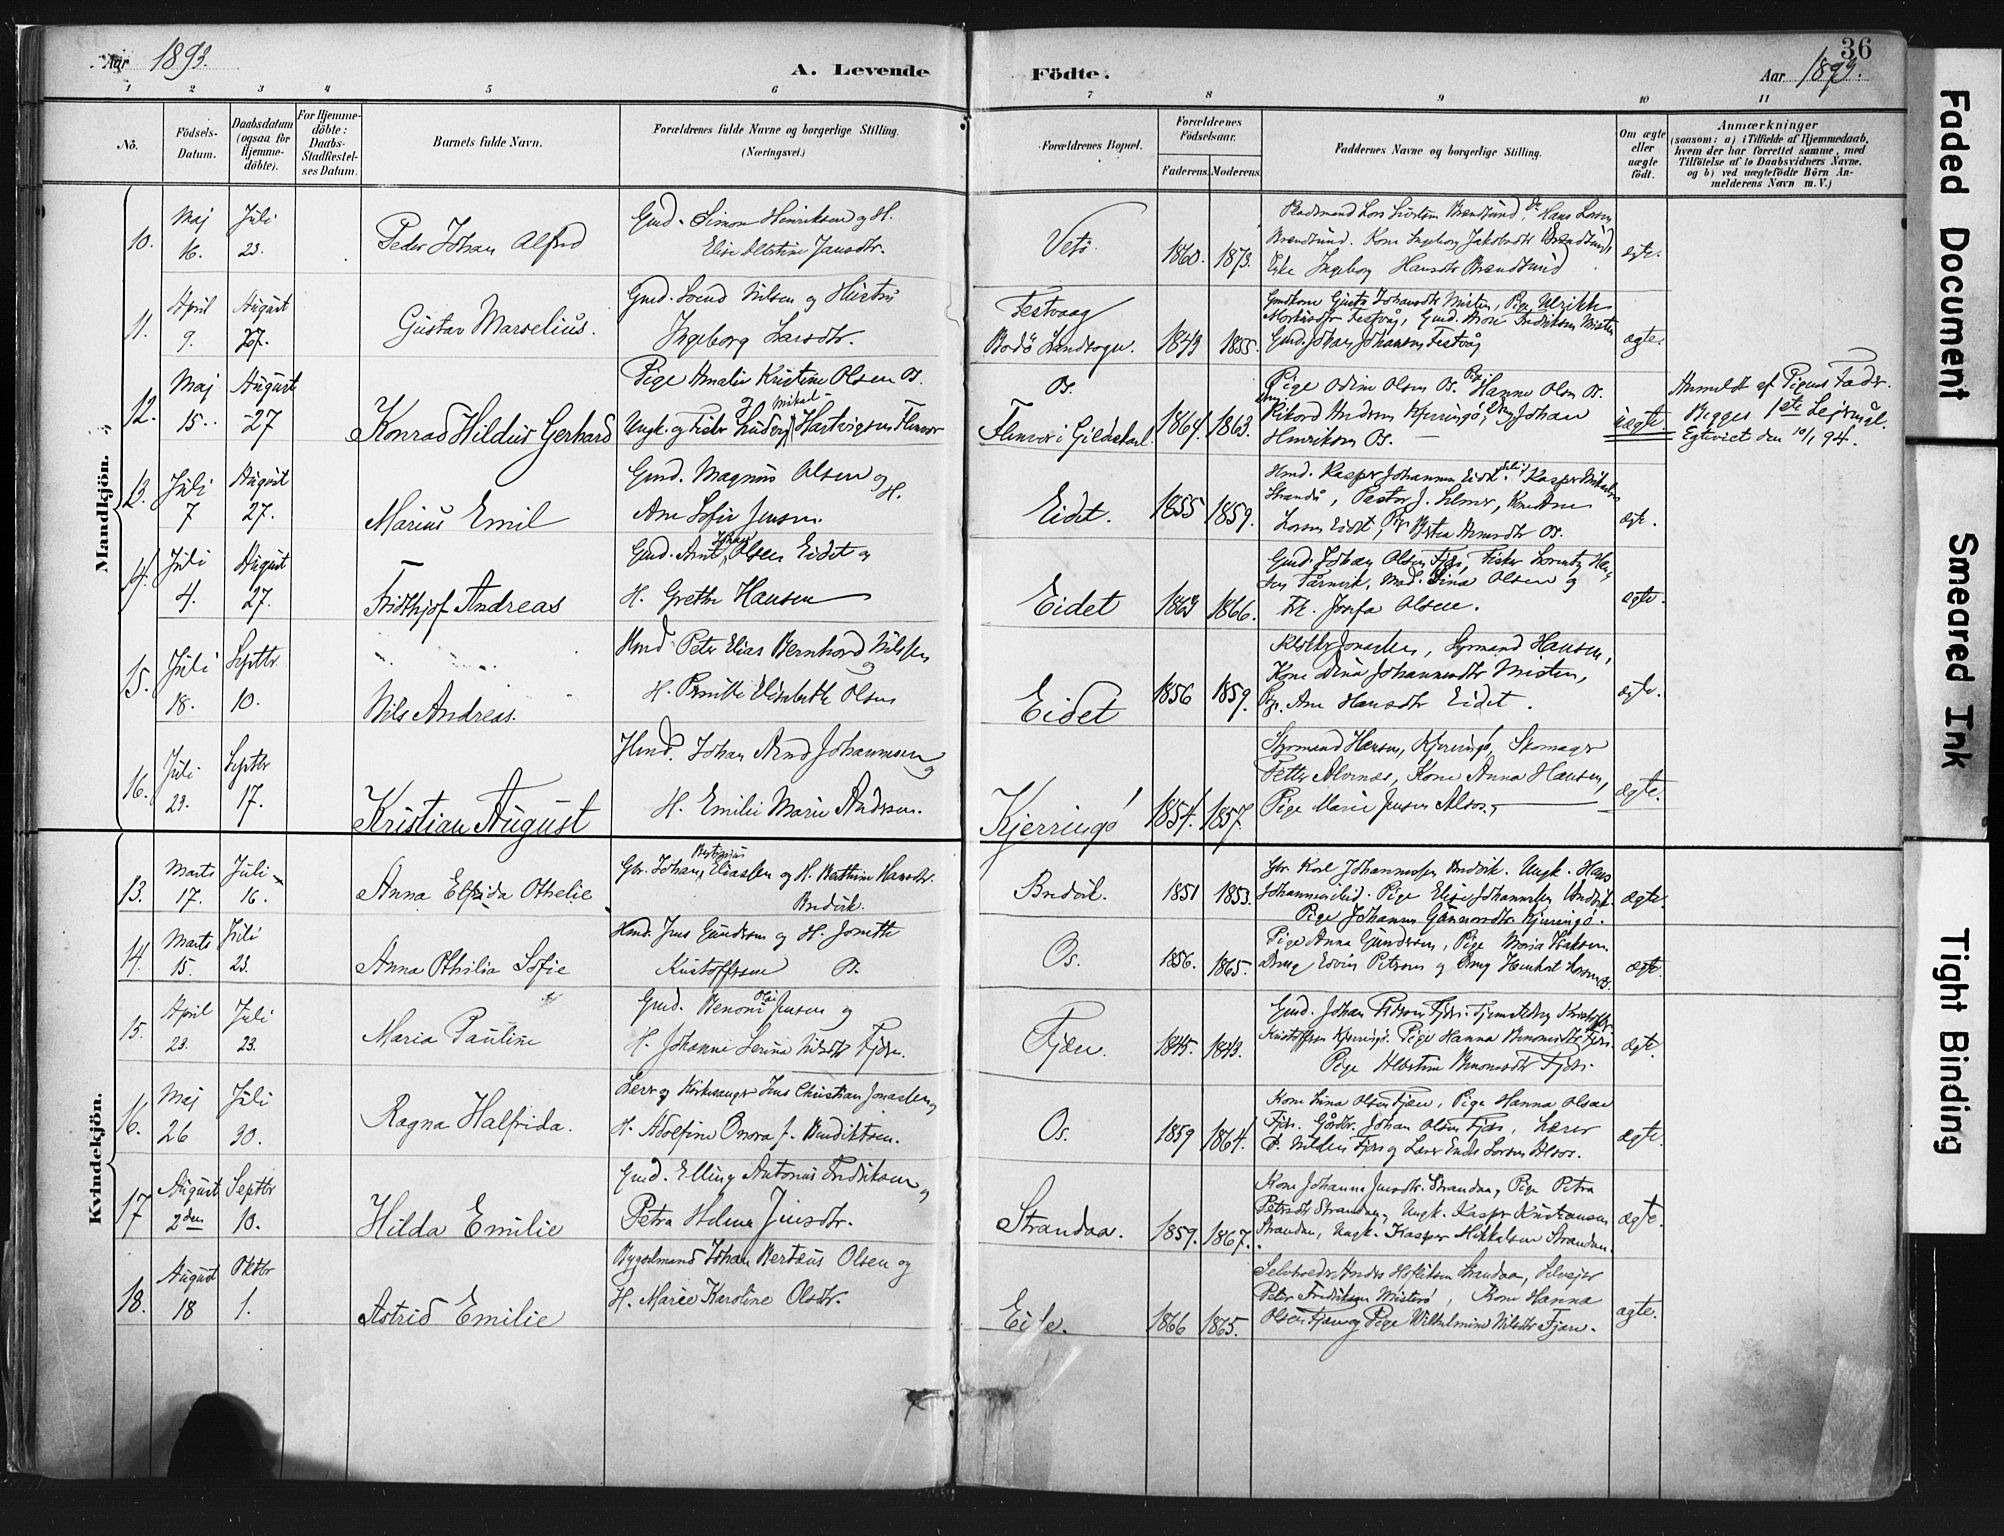 Aar 1893.
A. Levende
Födte.
36
Aar 1893.
1 2 3 4 5 6 7 8 9 10 11
No.
Födsels-
Datum.
Daabsdatum
(ogsaa för
Hjemme-
döbte).
For Hjemme-
döbte:
Daabs-
Stadfæstel-
ses Datum.
Barnets fulde Navn.
Forældrenes fulde Navne og borgerlige Stilling.
(Næringsvei.)
Forældrenes Bopæl.
Forældrenes
Födselsaar.
Faderens. Moderens.
Faddernes Navne og borgerlige Stilling.
Om ægte
eller
uægte
födt.
Anmærkninger
(saasom: a) i Tilfælde af Hjemmedaab,
hvem der har forrettet samme, med
Tilföielse af to Daabsvidners Navne.
og b) ved uægtefödte Börn An-
melderens Navn m. V.)
Mandkjön.
10. Maj 16. Juli 23. Peder Johan Alfred
Gmd. Simon Henriksen og H.
Elise Jansdtr.
Vetö. 1860. 1873.
Hans Larsen
Kone Ingeborg
Ingeborg Hansdtr
ægte.
11. April 9. August 27. Gustav Marselius.
Gmd. Svend Nilsen og Hustru
Ingeborg Larsdtr.
Festvaag
Bodö Landsogn. 1849 1855.
Johansdtr Misten, Pige Ulrikke
Festvåg, Gmd. Fredriksen Misten
Gmd. Johan Johansen Festvåg
ægte.
12. Maj 15. August 27 Konrad Hildur Gerhard
Pige Amalie Kristine Olsen Os.
og Mikal
Ungk. og Fisker Ludvig Hartvigsen
Os.
i Gildeskaal. 1864. 1863.
Pige Odine Olsen Os. Pige Hanne Olsn Os.
Rikard Andersen Kjerringö, Johan
Henriksen Os.
uægte
Anmeldt af Pigens Fader.
Begges 1ste Lejermål.
Egteviet den 10/1 94.
13. Juli 7 August 27. Marius Emil
Gmd. Magnus Olsen og H.
Ane Sofie Jensen.
Eidet. 1855 1859.
Hmd. Kasper Johannesen Eidet. Kasper
Strandå, Pastor J. Kone Ane
Larsen Eidet, Os.
ægte.
14. Juli 4. August 27. Fridthjof Andreas
Johan
Gmd. Arnt Olsen Eidet og
H. Grethe Hansen
Eidet 1863 1866.
Gmd. Johan Olsen Fjær, Fisker Lorentz Han-
sen Tårnvik, Mad. Lina Olsen og
Josefa Olsen.
ægte.
15. Juli 18. Septbr 10. Nils Andreas.
Hmd Peter Elias Bernhard Nilssen
og
H. Pernille Elisabeth Olsen
Eidet 1856 1859.
Klokker Jonassen, Styrmand Hansen,
Kone Dina Johannesdtr Misten,
Pig. Ane Hansdtr Eidet.
ægte.
16. Juli 23. Septbr 17. Kristian August
Hmd. Johan Arnd Johannesen
og
H. Emilie Marie Andersen.
Kjerringö 1854. 1857.
Styrmand Hansen, Kjerringö, Skomager
Petter Alvenæs, Kone Anna Hansen,
Pige Marie Jensen Alsos.
ægte.
Kvindekjön.
13. Marts 17. Juli 16. Anna Elfrida Othelie
Gbr. Johan Eliassen og H. Berthine Hansdtr.
Bredvik.
Bredvik. 1851 1853.
Gbr. Karl Johannessen Bredvik. Ungk. Hans
Pige Elise Johannessen Bredvik.
Pige Johanna Gunnarsdtr Kjerringö.
ægte.
14. Marts 15. Juli 23. Anna Othilia Sofie
Hmd. Jens Gundersen og H. Jonette
Kristoffersen Os.
Os. 1856. 1865.
Pige Anna Gundersen, Pige Maria Isaksen
Dreng Edvin Petersen og Dreng
ægte
15. April 23. Juli 23. Maria Pauline
Gmd. Benoni Olai Jensen og
H. Johanne Serina Nilsdtr Fjære.
Fjær. 1845. 1843.
Gmd. Johan Fjær.
Kristoffersen Kjerringö. Pige Hanna Benonisdtr Fjær.
Pige Albertine Benonisdtr Fjær.
ægte.
16. Maj 26 Juli 30. Ragna Halfrida.
Lærer og Kirkesanger Jens Christian Jonassen og
H. Adolfine Onora f. Bendiktsen.
Os. 1859 1864.
Kone Lina Olsen Fjær, Pige Hanna Olsen
Fjær. Gårdbr. Johan Olsen Fjær, Lærer
P. Nilssen Fjær og Lærer Larsen Alsos.
ægte
17 August 2den Septbr 10. Hilda Emilie
Gmd. Elling Antonius Fredriksen og
Petra Helena Jensdtr.
Strandaa. 1859. 1867.
Kone Johanna Jensdtr. Strandaa, Pige Petra
Petersdtr Strandaa, Ungk. Kasper Kristiansen
Strandaa, Ungk. Kasper Mikkelsen Strandaa.
ægte.
18. August 18 Oktbr 1. Astrid Emilie
Bygselmand Johan Berteus Olsen og
H. Marie Karoline Olsdtr.
Eide. 1866 1865.
Selveier Strandaa, Selvejer
Peter Fredriksen Misterö, Kone Hanna
Olsen Fjær og Pige Wilhelmine Nilsdtr Fjære.
ægte.
Faded Document
Smeared Ink
Tight Binding